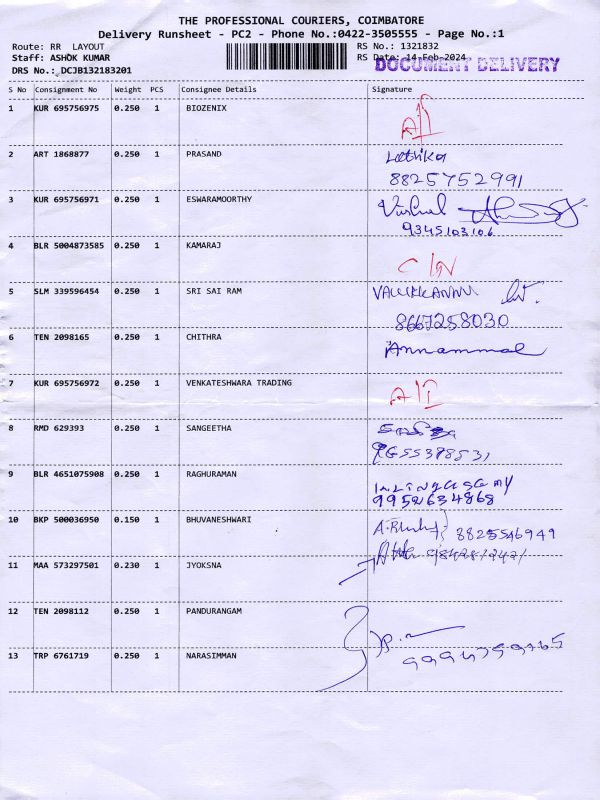 THE PROFESSIONAL COURIERS, COIMBATORE
Delivery Runsheet - PC2 - Phone No.:0422-3505555 - Page No.:1
Route: RR LAYOUT RS No.: 1321832
Staff: ASHOK KUMAR RS Date: 14-Feb-2024
DOCUMENT DELIVERY
DRS No.: DCJB132183201
S No Consignment No Weight PCS Consignee Details Signature
1 KUR 695756975 0.250 1 BIOZENIX
2 ART 1868877 0.250 1 PRASAND
8825752991
3 KUR 695756971 0.250 1 ESWARAMOORTHY
9345103106
4 BLR 5004873585 0.250 1 KAMARAJ
5 SLM 339596454 0.250 1 SRI SAI RAM
8667258030
6 TEN 2098165 0.250 1 CHITHRA Annammal
7 KUR 695756972 0.250 1 VENKATESHWARA TRADING
8 RMD 629393 0.250 1 SANGEETHA
9 BLR 4651075908 0.250 1 RAGHURAMAN
9952634868
10 BKP 500036950 0.150 1 BHUVANESHWARI 8825546949
11 MAA 573297501 0.230 1 JYOKSNA
12 TEN 2098112 0.250 1 PANDURANGAM
13 TRP 6761719 0.250 1 NARASIMMAN